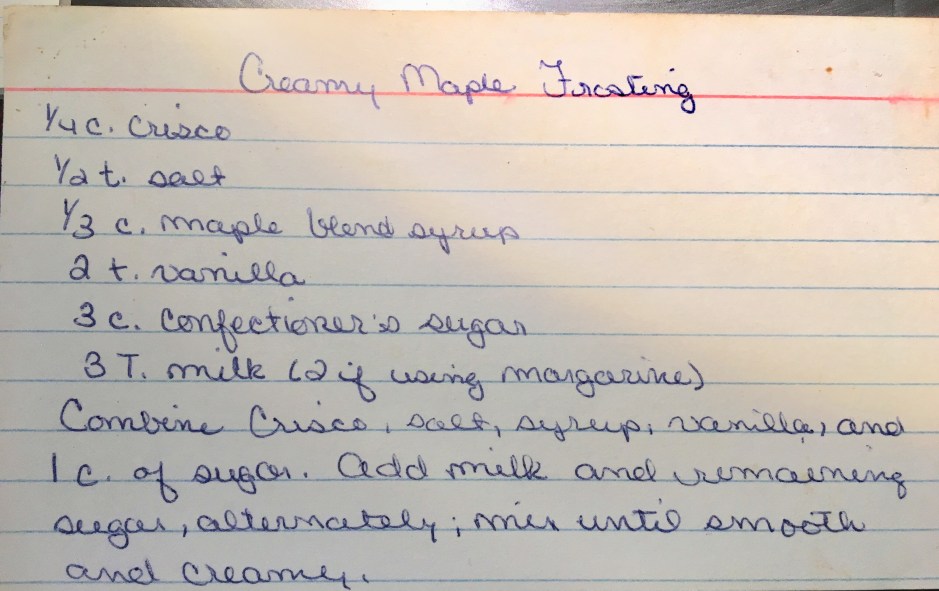 Creamy Maple Frosting
1/4 c. Crisco
1/2 t. salt
1/3 c. maple blend syrup
2 t. vanilla
3 c. confectioner's sugar
3 T. milk (2 if using margarine)
Combine Crisco, salt, syrup, vanilla, and
1 c. of sugar. Add milk and remaining
sugar, alternately; mix until smooth
and creamy.